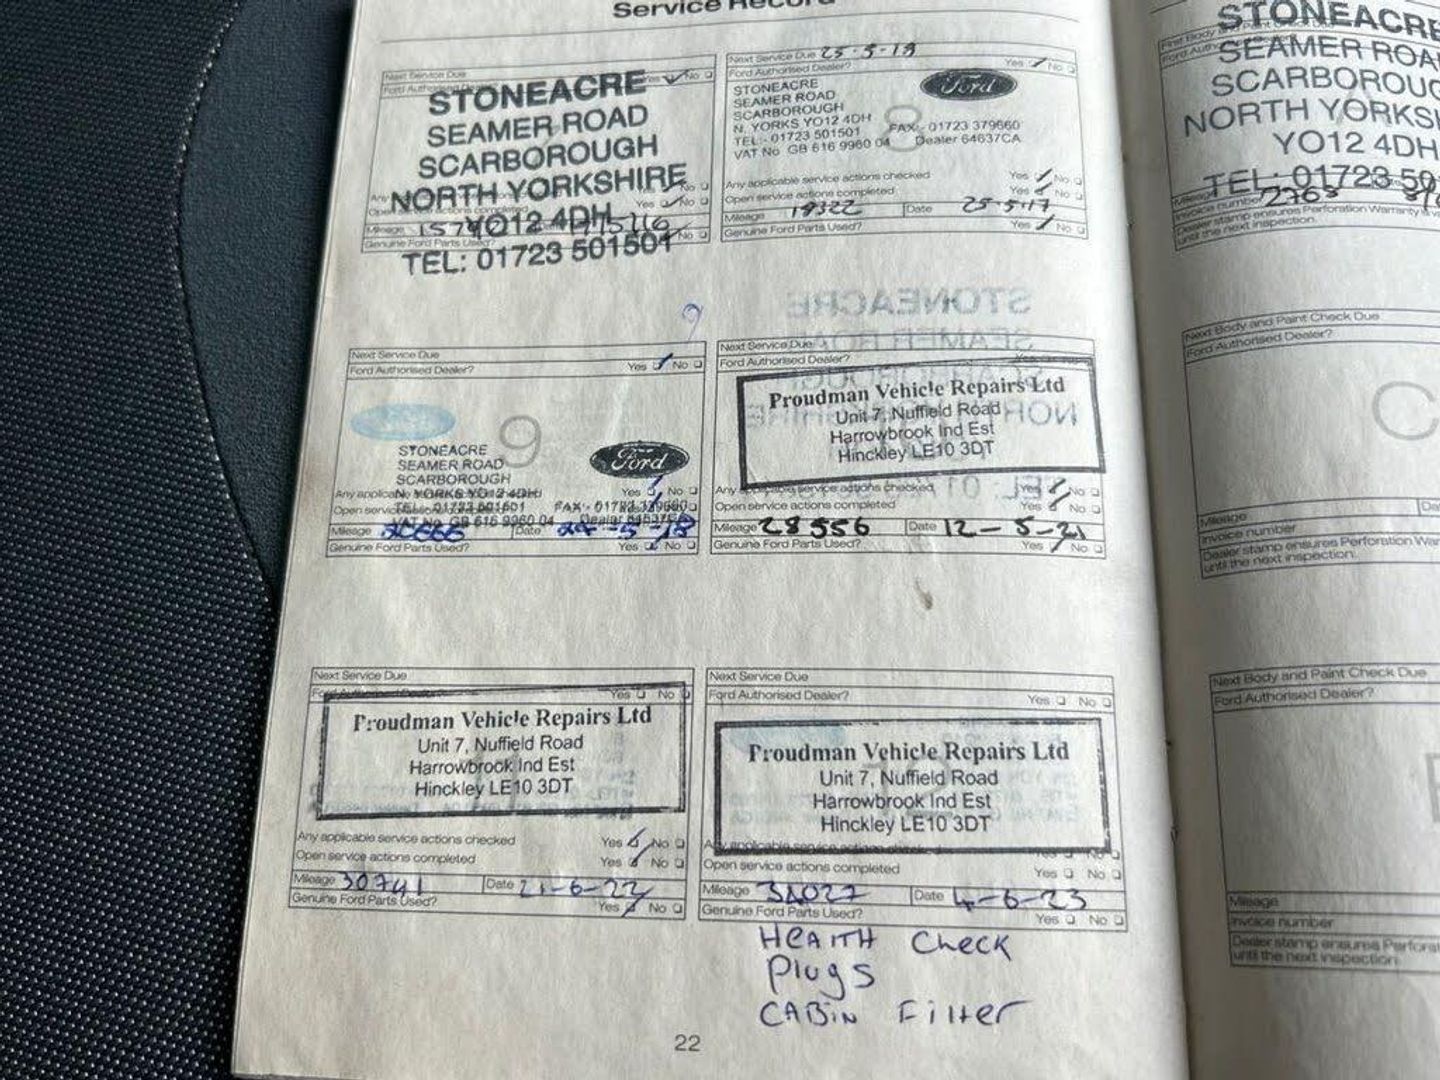 Service Record
Next Service Due
Yes No
STONEACRE
SEAMER ROAD
SCARBOROUGH
NORTH YORKSHIRE
YO12 4DH
TEL: 01723 501501
Mileage
Genuine Ford Parts Used? No
Next Service Due 25-5-18
Ford Authorised Dealer? Yes No
Ford
STONEACRE
SEAMER ROAD
SCARBOROUGH
N. YORKS YO12 4DH
TEL:- 01723 501501 FAX:- 01723 379660
VAT No GB 616 9960 04 Dealer 64637CA
8
Any applicable service actions checked Yes No
Open service actions completed Yes No
Mileage 19322 Date 25-5-17
Genuine Ford Parts Used? Yes No
9
Next Service Due
Ford Authorised Dealer? Yes No
9
Ford
STONEACRE
SEAMER ROAD
SCARBOROUGH
N. YORKS YO12 4DH
TEL:- 01723 501501 FAX:- 01723 379660
VAT No GB 616 9960 04 Dealer 64637CA
Yes No
Mileage Date
Genuine Ford Parts Used? Yes No
Next Service Due
Ford Authorised Dealer?
Proudman Vehicle Repairs Ltd
Unit 7, Nuffield Road
Harrowbrook Ind Est
Hinckley LE10 3DT
Any applicable service actions checked Yes No
Open service actions completed Yes No
Mileage 28556 Date 12-5-21
Genuine Ford Parts Used? Yes No
Next Service Due
Ford Authorised Dealer? Yes No
Proudman Vehicle Repairs Ltd
Unit 7, Nuffield Road
Harrowbrook Ind Est
Hinckley LE10 3DT
Any applicable service actions checked Yes No
Open service actions completed Yes No
Mileage 30741 Date 21-6-22
Genuine Ford Parts Used? Yes No
Next Service Due
Ford Authorised Dealer? Yes No
Proudman Vehicle Repairs Ltd
Unit 7, Nuffield Road
Harrowbrook Ind Est
Hinckley LE10 3DT
Any applicable service actions
Open service actions completed Yes No
Mileage Date 4-6-23
Genuine Ford Parts Used? Yes No
HEAlTH Check
Plugs
CABiN Filter
22
STONEACRE
SEAMER ROA
SCARBOROUG
NORTH YORKSHI
YO12 4DH
TEL: 01723 50
Invoice number 2763
Dealer stamp ensures Perforation Warranty is v
until the next inspection.
Next Body and Paint Check Due
Ford Authorised Dealer?
C
Mileage Da
Invoice number
Dealer stamp ensures Perforation War
until the next inspection.
Next Body and Paint Check Due
Ford Authorised Dealer?
Mileage
Invoice number
Dealer stamp ensures Perforat
until the next inspection.